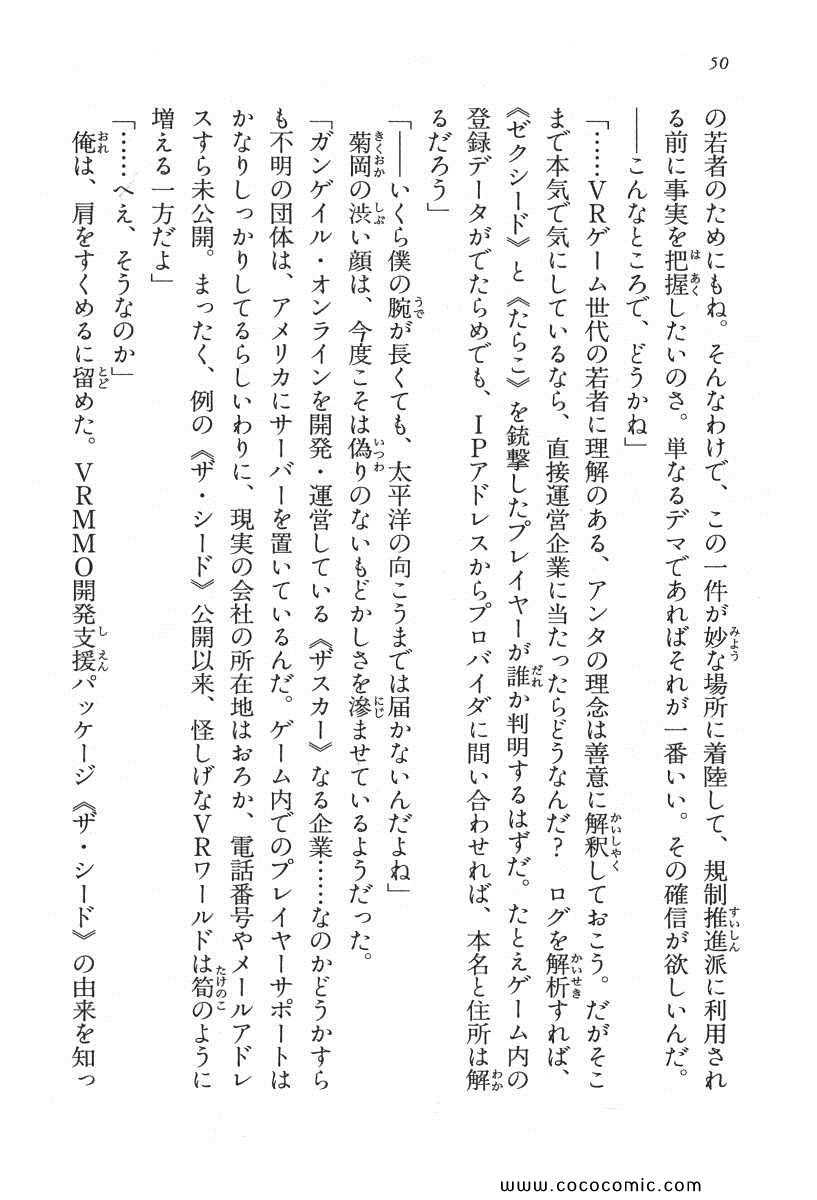 50
の若者のためにもね。そんなわけで、この一件が妙な場所に着陸して、規制推進派に利用され
る前に事実を把握したいのさ。単なるデマであればそれが一番いい。その確信が欲しいんだ。
――こんなところで、どうかね」
「……ＶＲゲーム世代の若者に理解のある、アンタの理念は善意に解釈しておこう。だがそこ
まで本気で気にしているなら、直接運営企業に当たったらどうなんだ？　ログを解析すれば、
《ゼクシード》と《たらこ》を銃撃したプレイヤーが誰か判明するはずだ。たとえゲーム内の
登録データがでたらめでも、ＩＰアドレスからプロバイダに問い合わせれば、本名と住所は解
るだろう」
「――いくら僕の腕が長くても、太平洋の向こうまでは届かないんだよね」
菊岡の渋い顔は、今度こそは偽りのないもどかしさを滲ませているようだった。
「ガンゲイル・オンラインを開発・運営している《ザスカー》なる企業……なのかどうかすら
も不明の団体は、アメリカにサーバーを置いているんだ。ゲーム内でのプレイヤーサポートは
かなりしっかりしてるらしいわりに、現実の会社の所在地はおろか、電話番号やメールアドレ
スすら未公開。まったく、例の《ザ・シード》公開以来、怪しげなＶＲワールドは筍のように
増える一方だよ」
「……へえ、そうなのか」
俺は、肩をすくめるに留めた。ＶＲＭＭＯ開発支援パッケージ《ザ・シード》の由来を知っ
www.cococomic.com